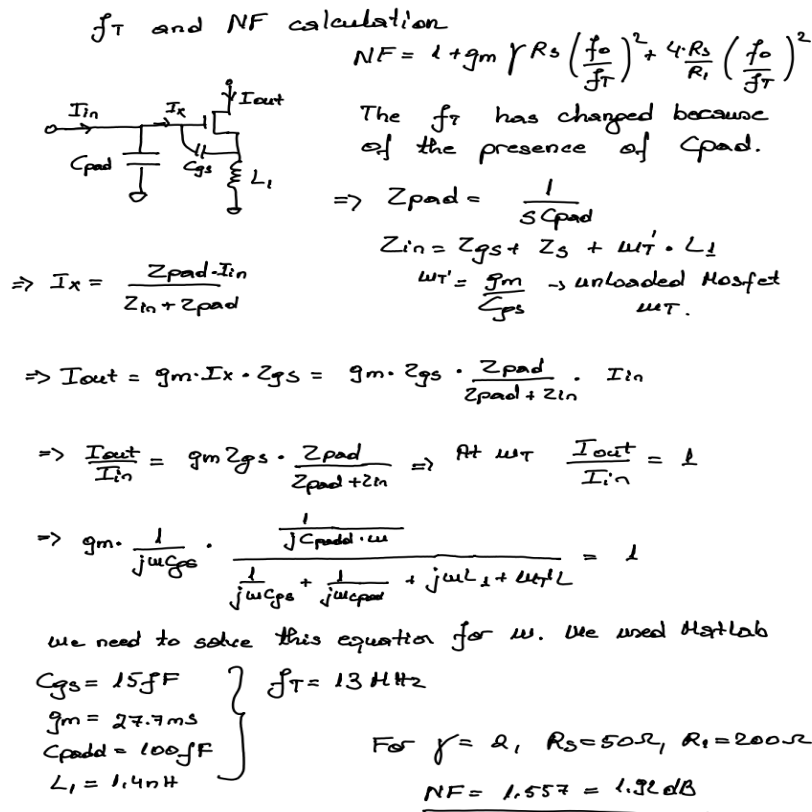 fT and NF calculation
NF = 1 + gm γ Rs (fo/fT)² + 4·Rs/R1 (fo/fT)²
Iin
Ix
Iout
Cpad
Cgs
L1
The fT has changed because
of the presence of Cpad.
=> Zpad = 1/(s Cpad)
Zin = Zgs + Zs + ωT' · L1
=> Ix = Zpad·Iin/(Zin + Zpad)
ωT' = gm/Cgs -> unloaded Mosfet
ωT.
=> Iout = gm·Ix·Zgs = gm·Zgs · Zpad/(Zpad + Zin) · Iin
=> Iout/Iin = gm Zgs · Zpad/(Zpad + Zin) => At ωT Iout/Iin = 1
=> gm · 1/(jωCgs) · (1/(jCpadd·ω))/(1/(jωCgs) + 1/(jωCpad) + jωL1 + ωT'L) = 1
We need to solve this equation for ω. We used Matlab
Cgs = 15fF
gm = 27.7ms
Cpadd = 100fF
L1 = 1.4nH
fT = 13 HHz
For γ = 2, Rs = 50Ω, R1 = 200Ω
NF = 1.557 = 1.92 dB